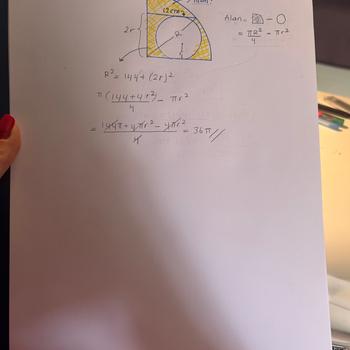 12cm
2r
R
r
Alan = ▨ - ○
= πR²/4 - πr²
R² = 144 + (2r)²
π(144+4r²)/4 - πr²
= 144π + 4πr² - 4πr²/4 = 36π //